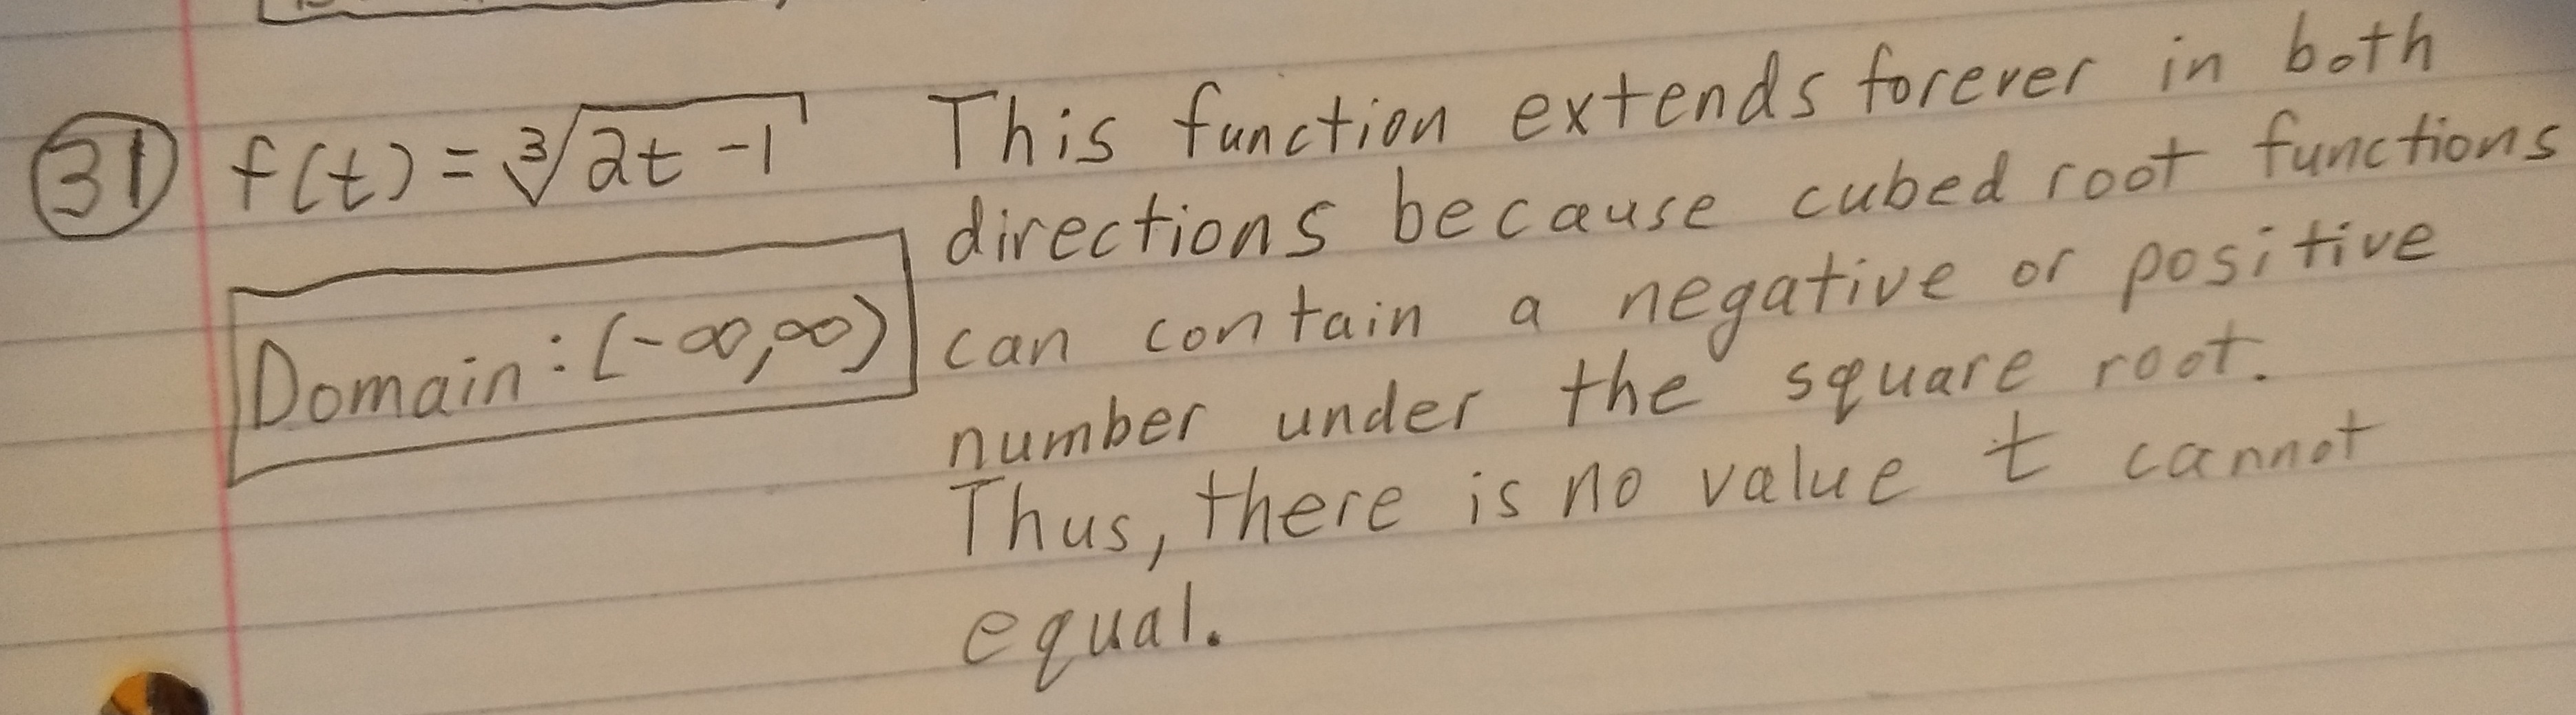 31 f(t) = ∛(2t - 1) This function extends forever in both
directions because cubed root functions
Domain: (-∞,∞) can contain a negative or positive
number under the square root.
Thus, there is no value t cannot
equal.